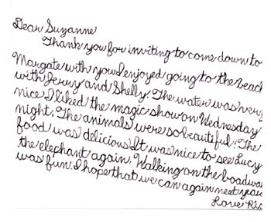 Dear Suzanne
Thank you for inviting to come down to
Margate with you I enjoyed going to the beach
with Jerry and Shelly. The water was very
nice I liked the magic show on Wednesday
night. The animals were so beautiful. The
food was delicious It was nice to see Lucy
the elephant again. Walking on the boadwa
was fun. I hope that we can again next year
Love